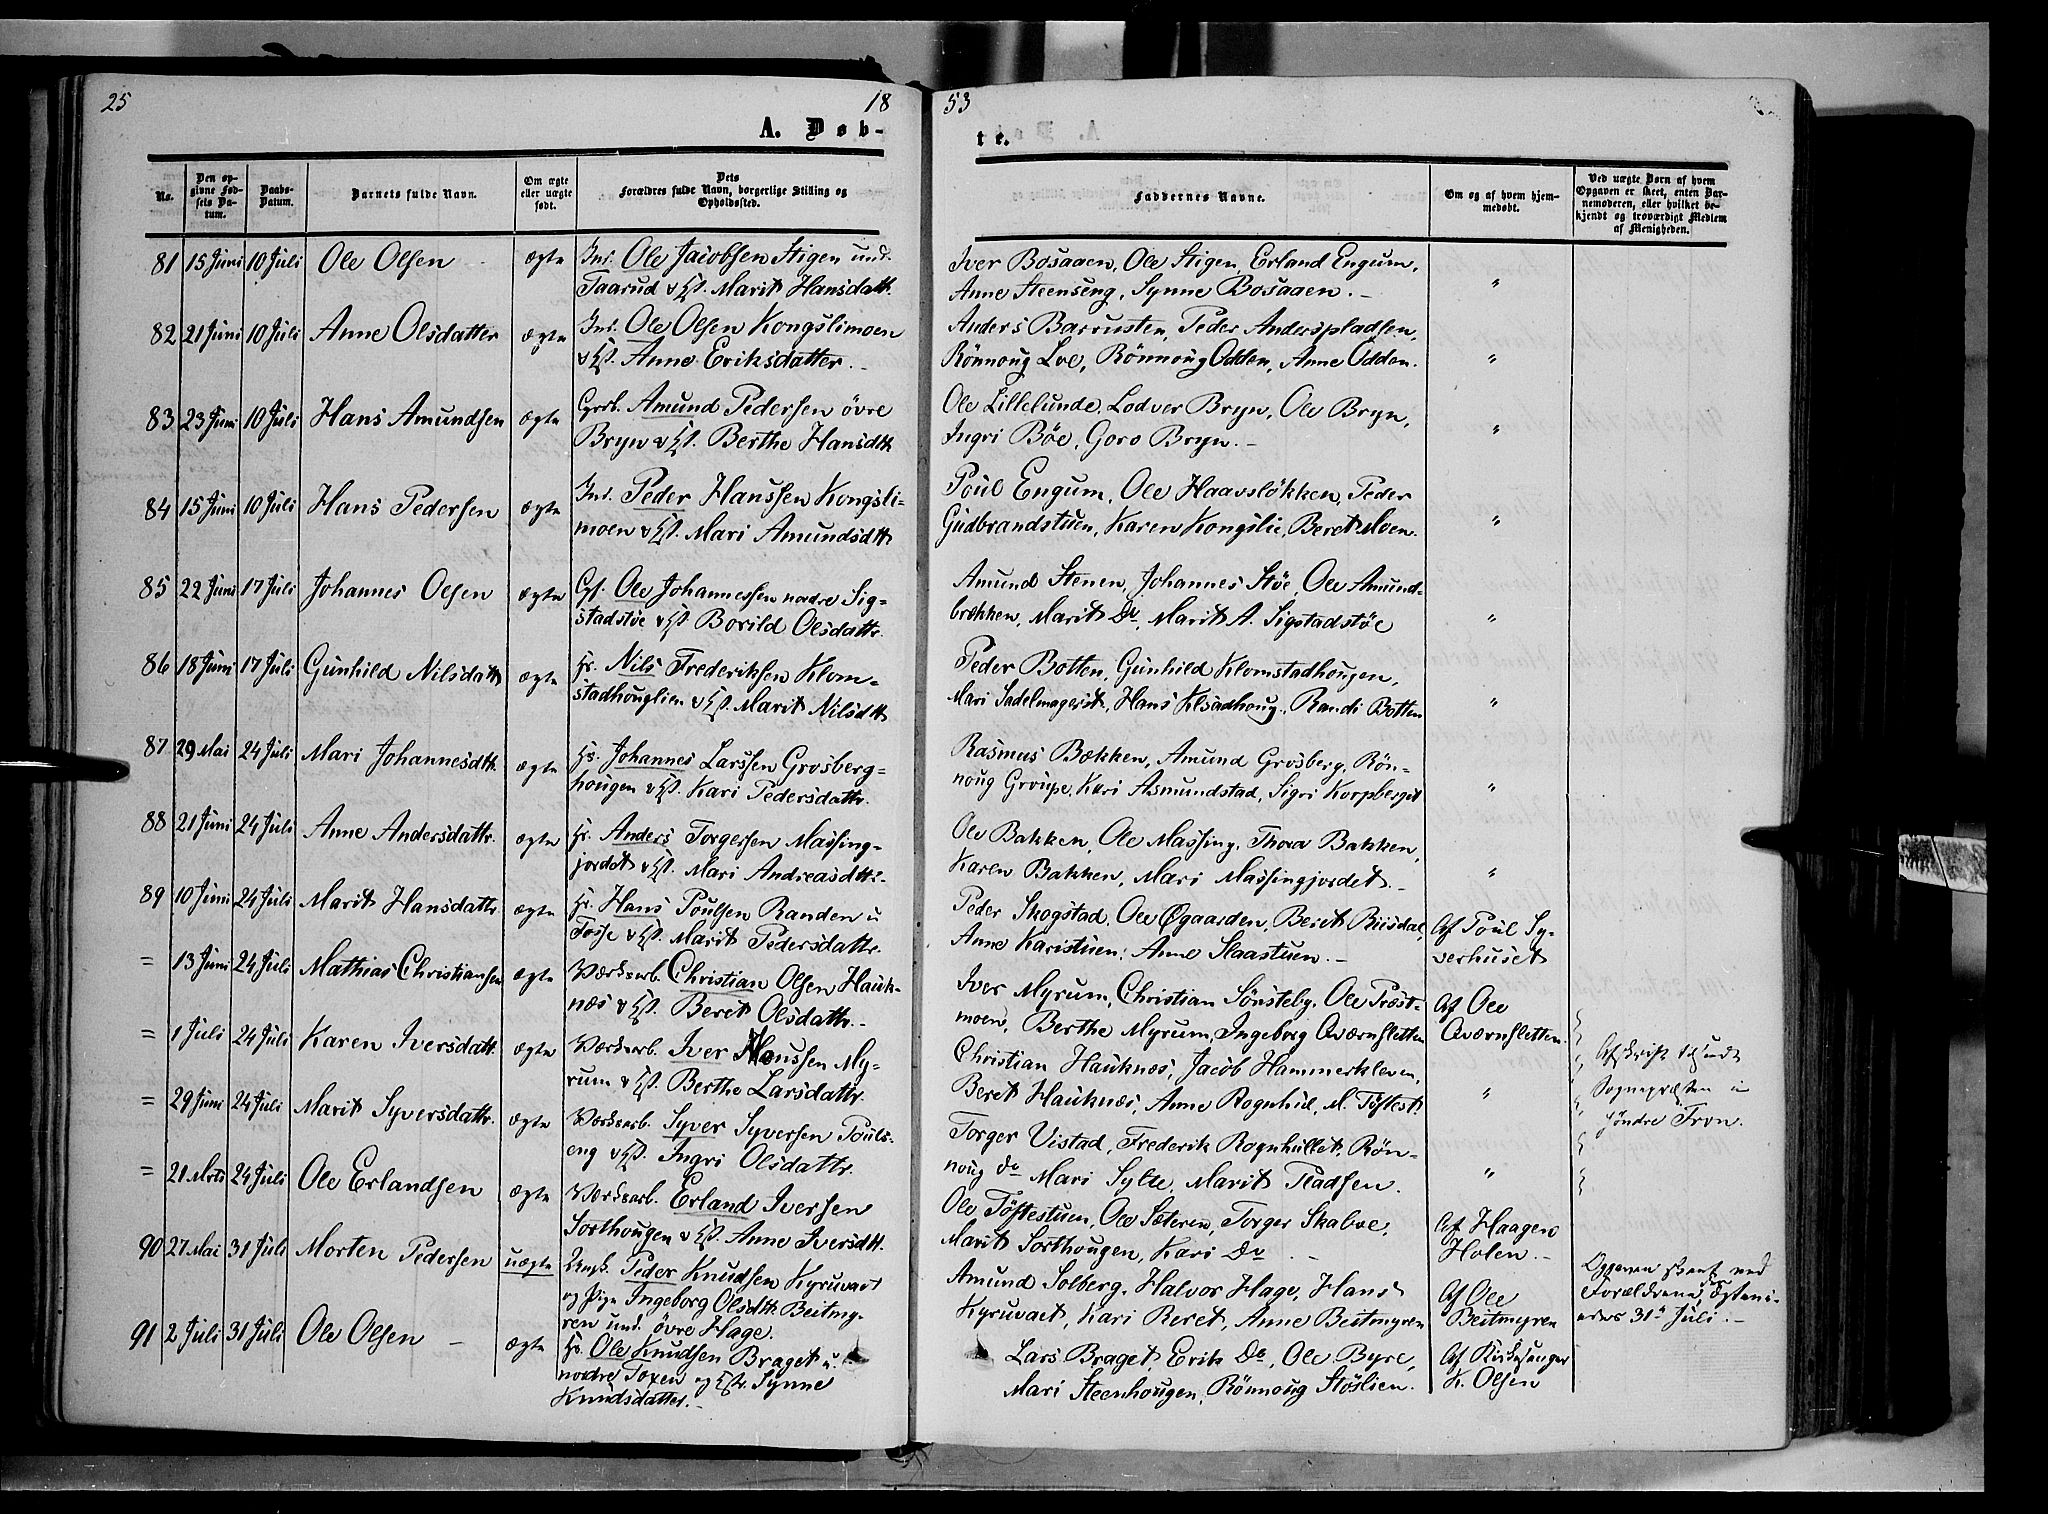 25
18
53
A. Døb-
te.
No.
Den op-
givne Fød-
sels Da-
tum.
Daabs-
Datum.
Barnets fulde Navn.
Om ægte
eller uægte
født.
Dets
Forældres fulde Navn, borgerlige Stilling og
Opholdssted.
Faddernes Navne.
Om og af hvem hjem-
medøbt.
Ved uægte Børn af hvem
Opgaven er skeet, enten Bar-
nemoderen, eller hvilket be-
kjendt og troværdigt Medlem
af Menigheden.
81 15 Juni 10 Juli Ole Olsen ægte Ind. Ole Jacobsen Stigen und.
Taarud & Hst. Marit Hansdattr.
Iver Bosaaen, Ole Stigen, Erland Engum, "
Anne Steenseng, Synne Bosaaen. –
82 21 Juni 10 Juli Anne Olsdatter ægte Ind. Ole Olsen Kongslimoen
& Hst. Anne Eriksdatter.
Anders Barrusten, Peder Anderspladsen, "
Rönnoug Loe, Rönnoug Odden, Anne Odden.
83 23 Juni 10 Juli Hans Amundsen ægte Grb. Amund Pedersen övre
Bryn & Hst. Berthe Hansdtt.
Ole Lillelunde, Lodver Bryn, Ole Bryn, "
Ingri Böe, Goro Bryn. –
84 15 Juni 10 Juli Hans Pedersen ægte Ind. Peder Hanssen Kongsli-
moen & Hst. Mari Amundsdtt.
Poul Engum, Ole Haavslökken, Peder "
Gudbrandstuen, Karen Kongslie, Beret Moen.
85 22 Juni 17 Juli Johannes Olsen ægte Gf. Ole Johannessen nordre Sig-
stadstöe & Hst. Borild Olsdattr.
Amund Stenen, Johannes Stöe, Ole Amund- "
brekken, Marit Do, Marit A. Sigstadstöe
86 18 Juni 17 Juli Gunhild Nilsdattr ægte Hr. Nils Frederiksen Klom-
stadhouglien & Hst. Marit Nilsdtt.
Peder Botten, Gunhild Klomstadhougen, "
Mari Sadelmagerst, Hans Klsadhoug, Randi Botten
87 29 Mai 24 Juli Mari Johannesdtt. ægte Hr. Johannes Larssen Grosberg-
hougen & Hst. Kari Pedersdattr.
Rasmus Bækken, Amund Grosberg, Rön- "
noug Groupe, Kari Asmundstad, Sigri Korpberget
88 21 Juni 24 Juli Anne Andersdattr. ægte Hr. Anders Torgersen Massing-
jordet & Hst. Mari Andreasdttr.
Ole Bakken, Ole Massing, Thora Bakken, "
Karen Bakken, Mari Massingjordet. –
89 10 Juni 24 Juli Marit Hansdattr ægte Hr. Hans Poulsen Randen u
Fosse & Hst. Marit Pedersdattr.
Peder Skogstad, Ole Øgaarden, Berit Riisdal, Af Poul Sy-
Anne Karistuen, Anne Slaastuen. – verhuset
= 13 Juni 24 Juli Mathias Christiansen ægte Værksarb. Christian Olsen Hauk-
næs & Hst. Beret Olsdattr.
Iver Myrum, Christian Sönsteby, Ole Præst- Af Ole
moen, Berthe Myrum, Ingeborg Qværnsletten Qværnsletten.
= 1 Juli 24 Juli Karen Iversdattr. ægte Værksarb. Iver Monssen My-
rum & Hst. Berthe Larsdattr.
Christian Hauknæs, Jacob Hammerkleven, "
Beret Hauknæs, Anne Rognhul, M. Töftest.
Afskrift udt
Sognepræsten i
söndre Fron.
= 29 Juni 24 Juli Marit Syversdattr. ægte Værksarb. Syver Syversen Pouls-
eng & Hst. Ingri Olsdattr.
Torger Vistad, Frederik Rognhullet, Rön- "
noug Do Mari Sylte, Marit Pladsen.
= 21 Mrts 24 Juli Ole Erlandsen ægte Værksarb. Erland Iversen
Sorthougen & Hst. Anne Iversdtt.
Ole Töftestuen, Ole Sæteren, Torger Skabve, Af Haagen
Marit Sorthougen, Kari Do. – Holen. –
90 27 Mai 31 Juli Morten Pedersen uægte Ungk. Peder Knudsen Kyruvaet
og Pige Ingeborg Olsdtt. Beitmy-
ren und. övre Hage.
Amund Solberg, Halvor Hage, Hans Af Ole
Kyruvaet, Kari Reret, Anne Beitmyren Beitmyren
Opgaven skeet ved
Forældrene,
31te Juli. –
91 2 Juli 31 Juli Ole Olsen – ægte Hr. Ole Knudsen Braget u.
nordre Toxen og Hstr. Synne
Knudsdatter. –
Lars Braget, Erik Do, Ole Byre, Af Kirkesanger
Mari Steenhougen, Rönnoug Stöslien. K. Olsen